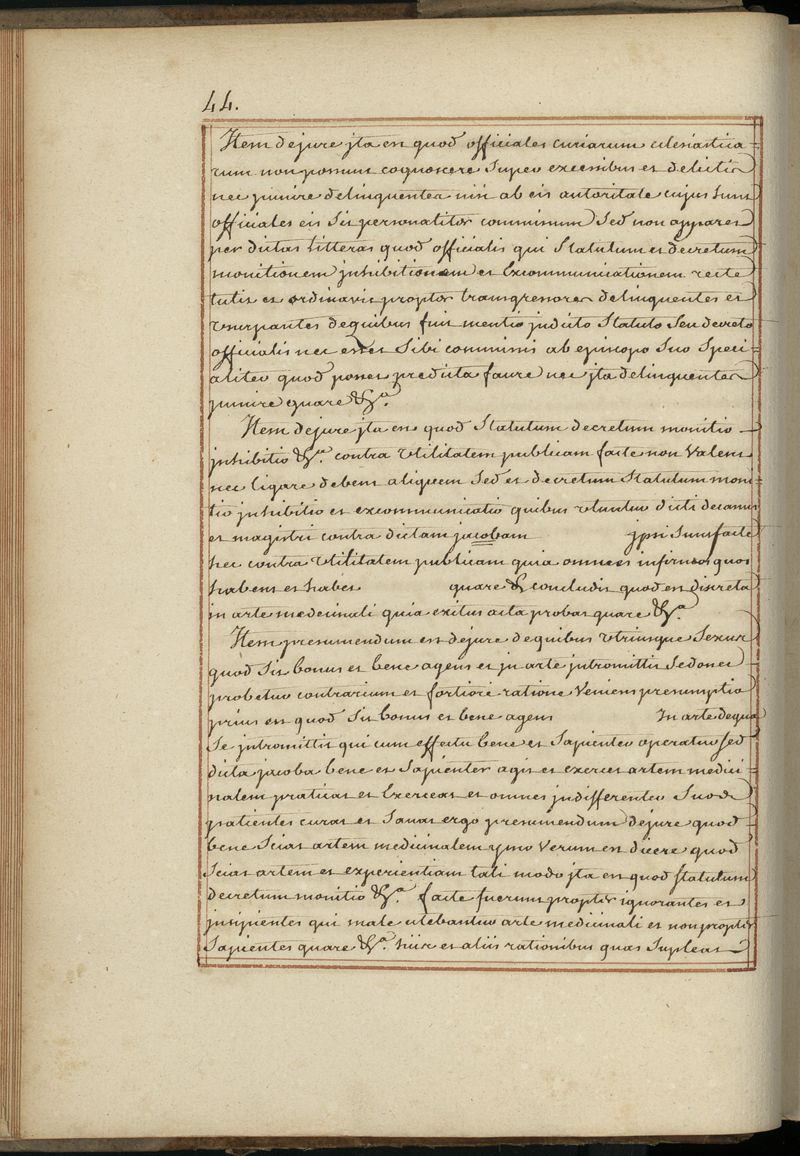 44.
Item dejure jta est quod officiales curiarum eclesiastica=
rum non possunt cognoscere Super excessibus et delictis
nec punire delinquentes nisi ab eis autoritate cujus Sunt
officiales eis Sit personaliter commissum Sed non apparet
per dictas litteras quod officialis qui Statutum et decretum
monitionem jnhibitionem et Excommunicationem recte
tulit et ordinavit propter transgressores delinquentes et
Vsurpantes dequibus fuit mentio jndicto Statuto Seu decreto
officialis nec esset Sibi commissis ab episcopo Suo Speci=
aliter quod posset predicta facere nec jta delinquentes
punire quare &.ª
Item dejure jta est quod Statutum decretum monitio
jnhibitio &.ª contra Vtilitatem publicam facte non Valent
nec ligare debent aliquem Sed et decretum Statutum moni=
tio jnhibitio et excommunicatio quibus Vtuntur dicti decanus
et magistri contra dictam jacobam jpsi Sunt facte
hec contra Vtilitatem publicam quia omnes infirmos quos
habent et habet quare & concludit quod est discreta
in arte medecinali quia exitus acta probat quare &.ª
Item presumendum est dejure dequibus Vtriusque Sexus
quod Sit bonus et bene agens et jn arte jntromittit Se donec
probetur contrarium et fortiori ratione Veniens presumptio
prius est quod Sit bonus et bene agens In arte dequa
Se jntromittit qui cum effectu bene et Sapienter operatur Sed
dicta jacoba bene et Sapienter agit et exercet artem medici=
nalem praticat et Exerceat et omnes jndifferenter Suos
patientes curat et Sanat ergo presumendum dejure quod
bene Sciat artem medicinalem ymo Verum est dicere quod
Sciat artem et experientiam tali modo jta est quod Statutum
decretum monitio &.ª facte fuerunt propter ignorantes et
jnsipientes qui male utebantur arte medicinali et non propter
Sapientes quare &.ª hiis et aliis rationibus quas Supleat